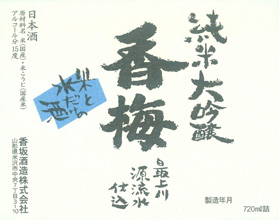 純米大吟醸
香梅
米と
水だけの
酒
最上川
源流水
仕込
日本酒
原材料名 米(国産)・米こうじ(国産米)
アルコール分15度
製造年月
720ml詰
香坂酒造株式会社
山形県米沢市中央7丁目3-10